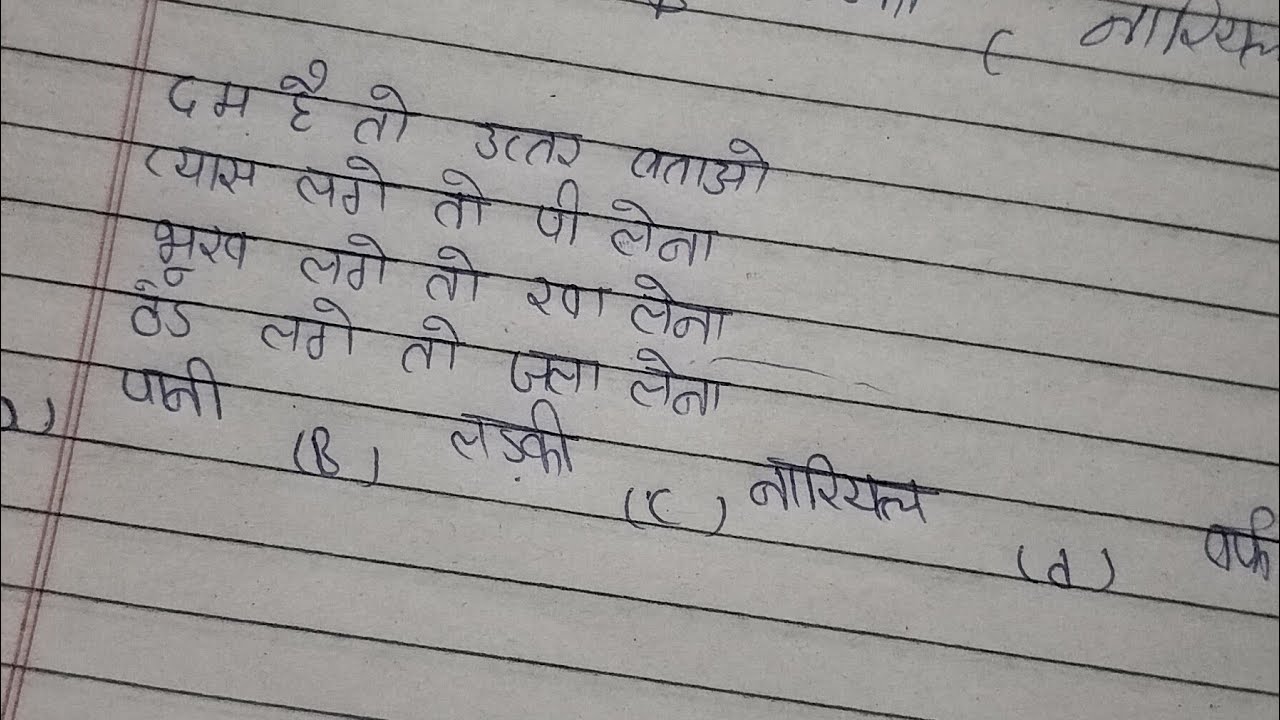 ( नारियल
दम है तो उत्तर बताओ
प्यास लगे तो पी लेना
भूख लगे तो खा लेना
ठंड लगे तो जला लेना
पानी (B) लड़की (C) नारियल (d) बर्फ